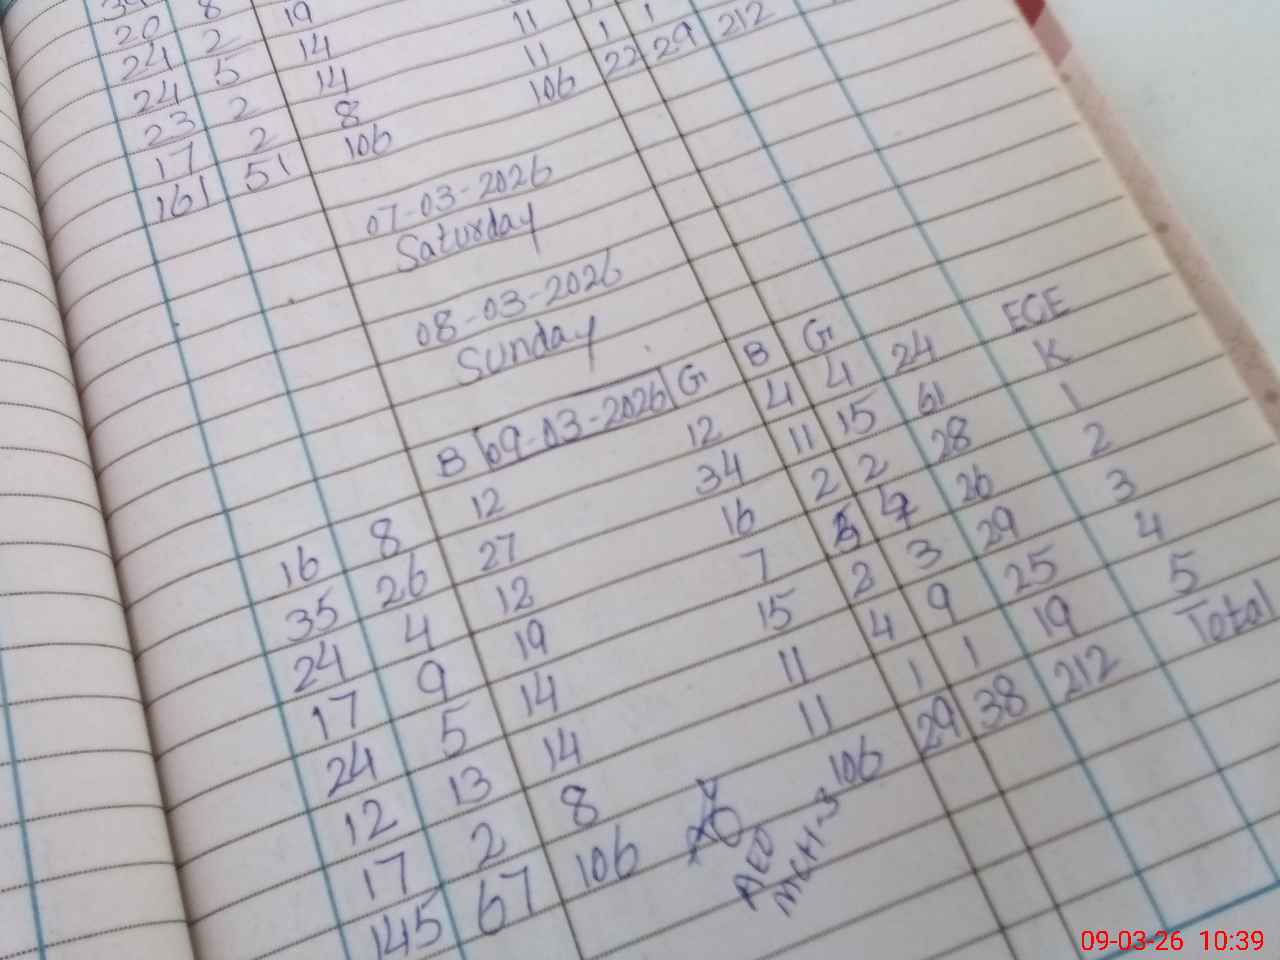 20 8
24 2 19
24 5 14
23 2 14 11
17 2 8 11 1 1
161 51 106 106 22 29 212
07-03-2026
Saturday
08-03-2026
Sunday
B 09-03-2026 G B G
16 8 12 12 4 4 24 ECE
35 26 27 34 11 15 61 K
24 4 12 16 2 2 28 1
17 9 19 7 26 2
24 5 14 15 2 3 29 3
12 13 14 11 4 9 25 4
17 2 8 11 1 1 19 5
145 67 106 106 29 38 212 Total
AEO
MCH-3
09-03-26 10:39